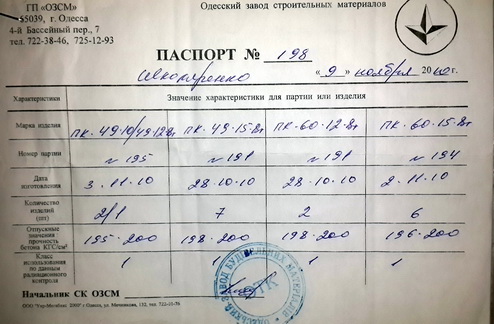 ГП «ОЗСМ»
65039, г. Одесса
4-й Бассейный пер., 7
тел. 722-38-46, 725-12-93
Одесский завод строительных материалов
ПАСПОРТ № 198
« 9 » ноября 2010г.
Характеристики Значение характеристики для партии или изделия
Марка изделия ПК-49-10/49-12-8т ПК-49-15-8т ПК-60-12-8т ПК-60-15-8т
Номер партии №195 №191 №191 №194
Дата изготовления 3.11.10 28.10.10 28.10.10 2.11.10
Количество изделий (шт) 2/1 7 2 6
Отпускные значения прочность бетона КГС/см² 195-200 198-200 198-200 196-200
Класс использования по данным радиационного контроля 1 1 1 1
Начальник СК ОЗСМ